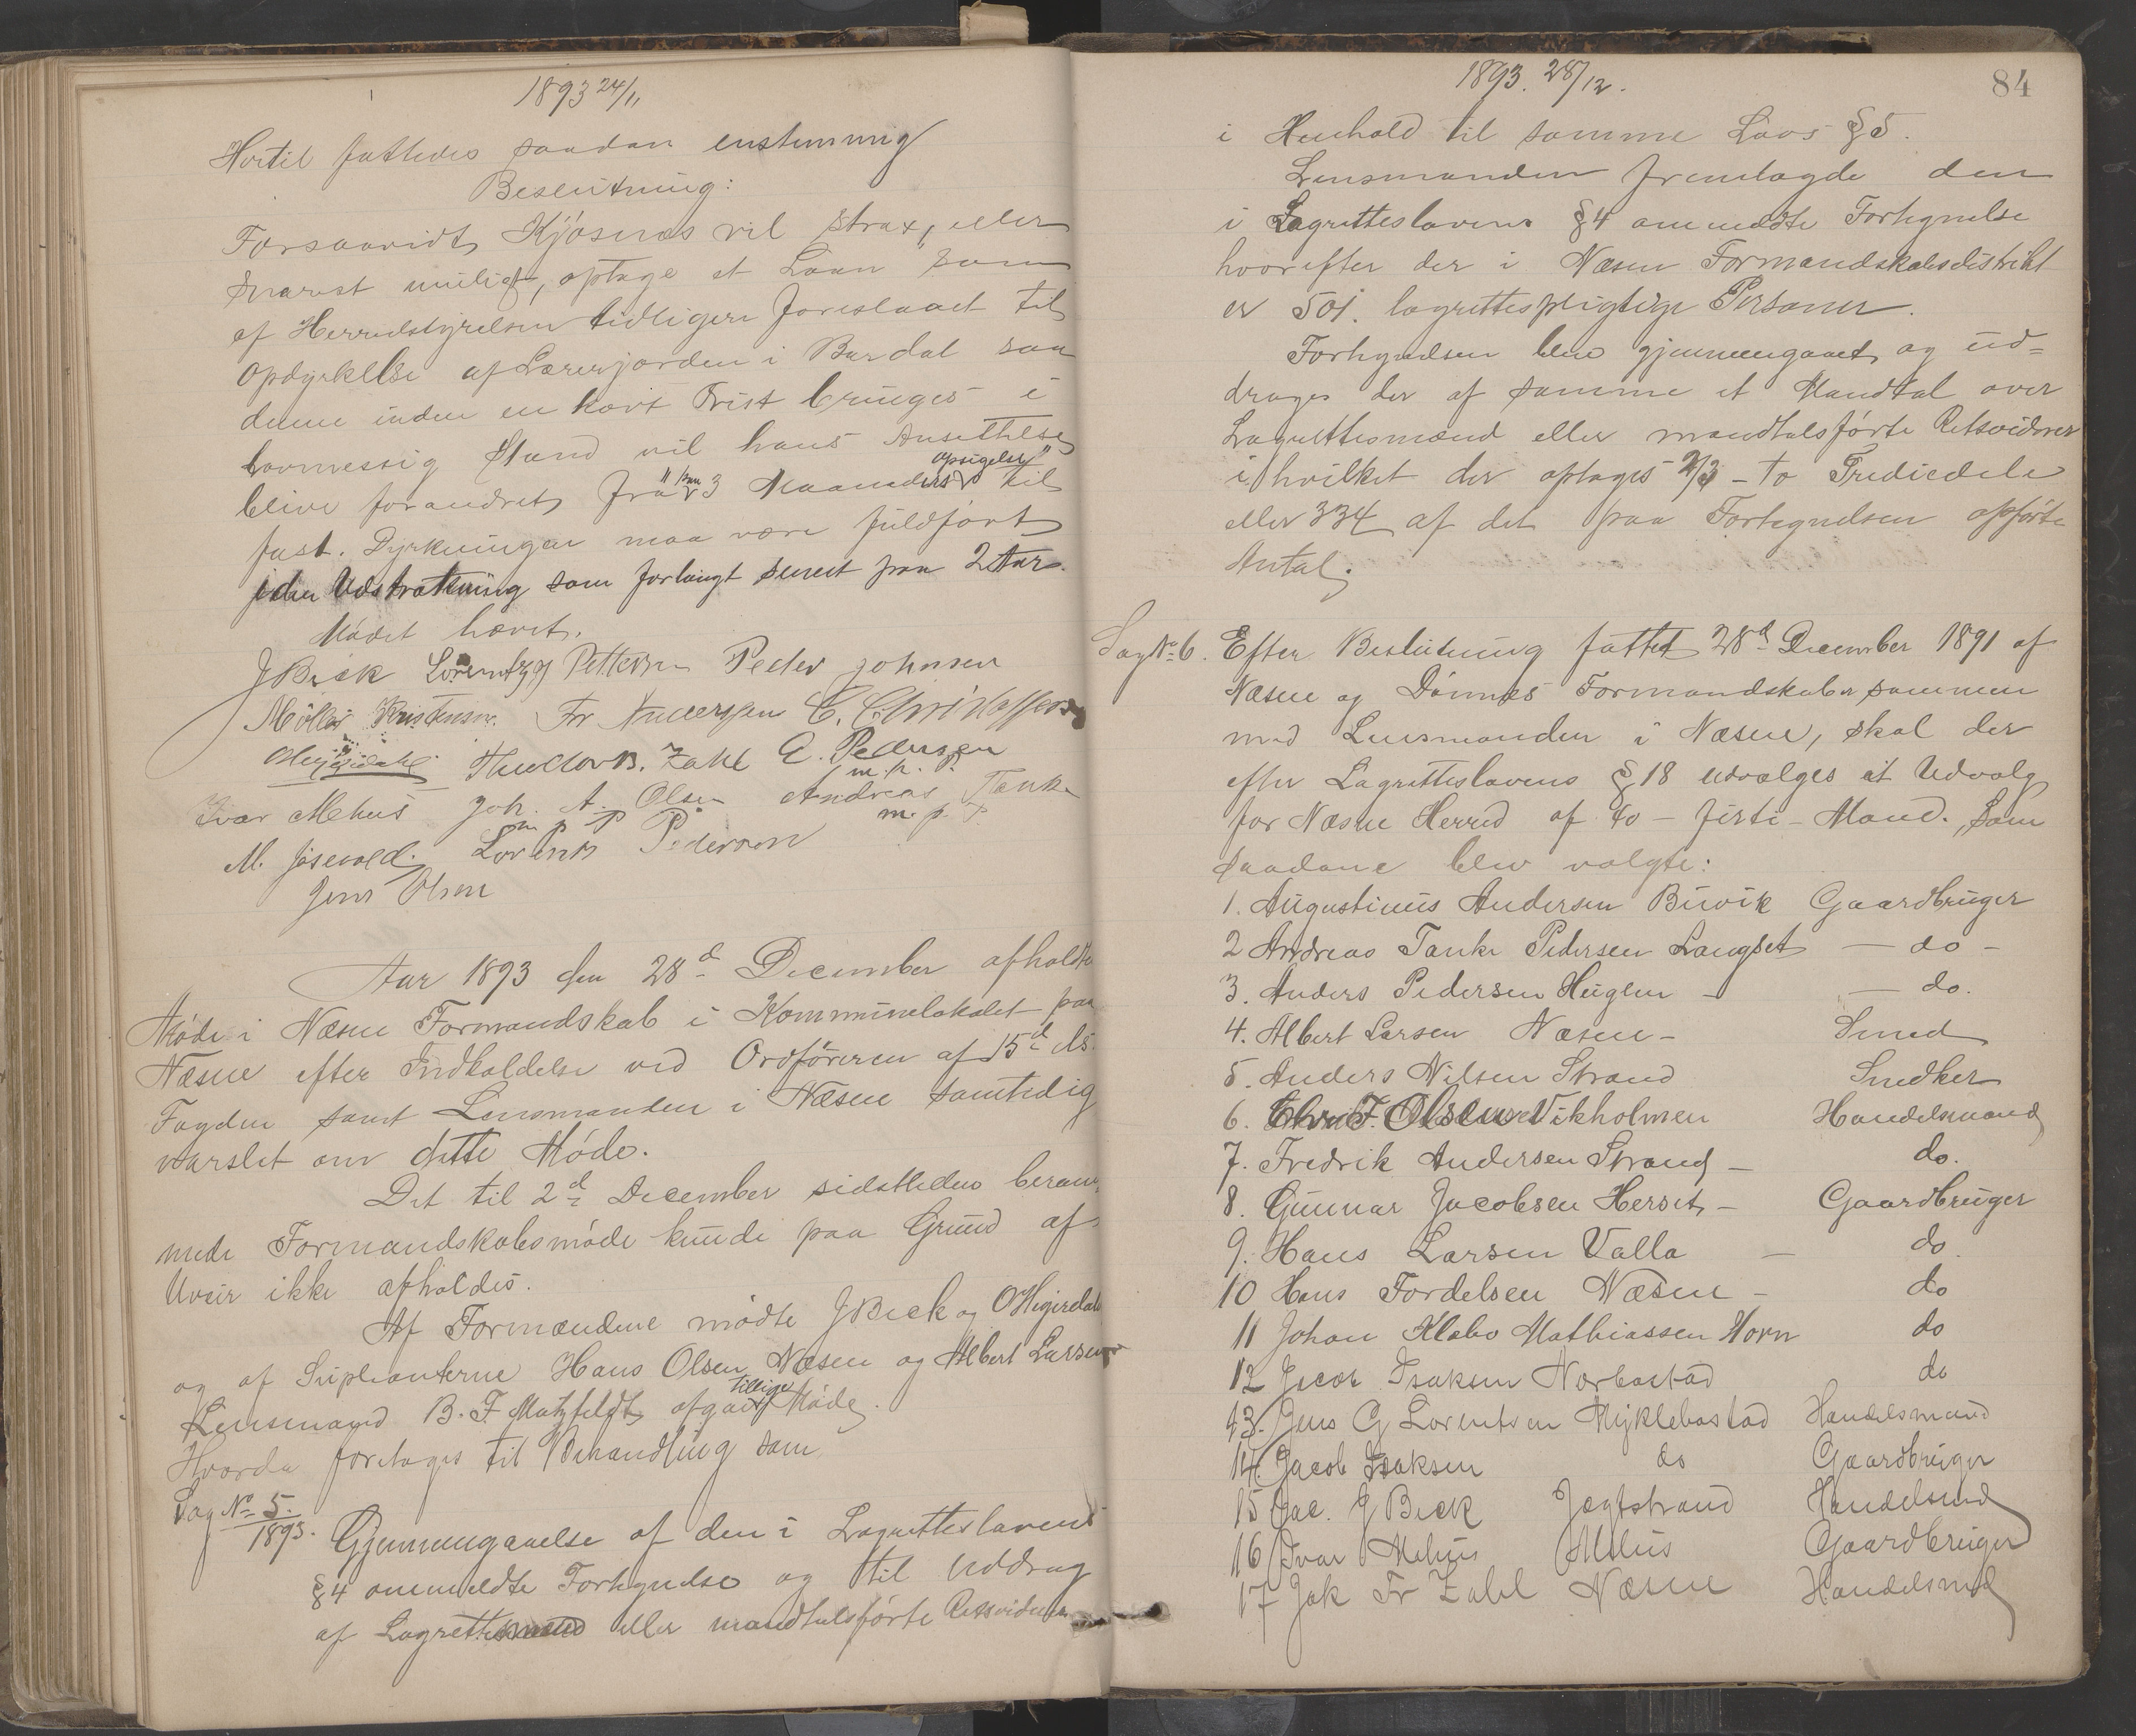 1893 24/11
Hertil fattedes saadan enstemmig
Beslutning:
Forsaavidt Kjösnes vil strax, eller
snarest muligt, optage et Laan som
af Herredstyrelsen tidligere foreslaaet til
Opdyrkelse af Lærerjorden i Bardal saa
denne inden en kort Frist bringes i
lovmessig Stand vil hans Ansættelse
blive forandret fra 3 Maaneders opsigelse til
fast. Dyrkningen maa være fuldført
i den Udstrækning som forlangt senest paa 2 Aar.
Mödet hævet.
J Beck Lorentz Pettersen Peder Johnsen
Möller Kristensen. Fr Andersen C. Christoffersen
OHegjerdahl Theodor B. Zahl A. Pedersen
m. p. P.
Ivar Mehus Joh. A. Olsen Andreas Tanke
m p P m. p. P
M. Jösevold. Lorents Pedersen
Jens Olsen
Aar 1893 den 28d December afholdtes
Möde i Næsne Formandskab i Kommunelokalet paa
Næsne efter Indkaldelse ved Ordföreren af 15d ds.
Fogden samt Lensmanden i Næsne samtidig
varslet om dette Möde.
Det til 2d December sidstleden beram-
mede Formandskabsmöde kunde paa Grund af
Uveir ikke afholdes.
Af Formændene mödte J Beck og O Hegjerdahl
og af Suplianterne Hans Olsen Næsne og Albert Larsen
Lensmand B. F. Motzfeldt afgav tillige Möde.
Hvorda foretoges til Behandling som
Sag No 5.
1893. Gjennemgaaelse af den i Lagretteslovens
§ 4 ommeldte Fortegnelse og til Uddrag
af Lagrettemænd eller mandtalsförte Retsvidner
1893. 28/12.
84
i Henhold til samme Lovs § 5.
Lensmanden fremlagde den
i Lagretteslovens § 4 ommeldte Fortegnelse
hvorefter der i Næsne Formandskabsdistrikt
er 501. lagrettespligtige Personer.
Fortegnelsen blev gjennemgaaet og ud=
drages der af samme et Mandtal over
Lagrettesmænd eller mandtalsförte Retsvidner
i hvilket der optages 2/3 - to Trediedele
eller 334 af det paa Fortegnelsen opförte
Antal.
Sag No 6. Efter Beslutning fattet 28d December 1891 af
Næsne og Dönnes Formandskaber sammen
med Lensmanden i Næsne, skal der
efter Lagretteslovens § 18 udvælges et Udvalg
for Næsne Herred af 40 - firti - Mand. Som
saadane blev valgte:
1. Augustinus Andersen Buvik Gaardbruger
2 Andreas Tanke Pedersen Langset — do -
3. Anders Pedersen Huglen - — do.
4. Albert Larsen Næsne - Smed
5. Anders Nilsen Strand Snedker
6. Chr. F. Olsen Vikholmen Handelsmand
7. Fredrik Andersen Strand - do.
8. Gunnar Jacobsen Herset - Gaardbruger
9. Hans Larsen Valla - do.
10 Hans Tordelsen Næsne - do
11 Johan Klabo Mathiassen Horn do
12 Jacob Isaksen Norbostad do
13. Jens G Lorentsen Myklebostad Handelsmand
14. Jacob Isaksen do Gaardbruger
15 Jac. G Beck Jægtstrand Handelsmd
16 Ivar Mehus Mehus Gaardbruger
17 Jak Fr Zahl Næsne Handelsmd